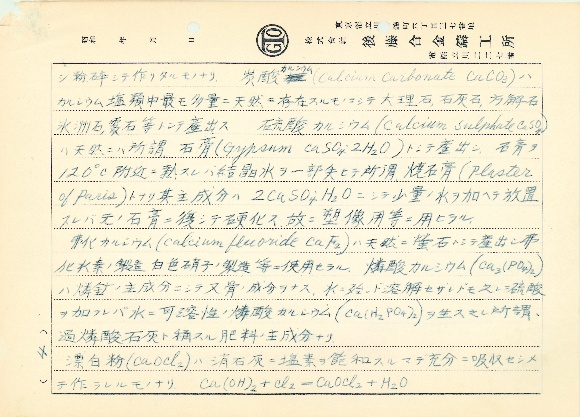 株式会社 後藤合金鑄工所
昭和 年 月 日
シ粉砕シテ作リタルモノナリ 炭酸カルシウム(calcium carbonate CaCO₃)ハ
カルシウム塩類中最モ多量ニ天然ニ存在スルモノニシテ大理石,石灰石,方解石
氷洲石霰石等トシテ産出ス 硫酸カルシウム(calcium sulphate CaSO₄)
ハ天然ニハ所謂石膏(Gypsum CaSO₄2H₂O)トシテ産出シ,石膏ヲ
120°C附近ニ熱スレバ結晶水ヲ一部失ヒテ所謂焼石膏(Plaster
of Paris)トナリ其主成分ハ2CaSO₄H₂Oニシテ少量ノ水ヲ加ヘテ放置
スレバ元ノ石膏ニ復シテ硬化ス,故ニ塑像用等ニ用ヒラル.
弗化カルシウム(calcium fluoride CaF₂)ハ天然ニ螢石トシテ産出シ弗
化水素ノ製造 白色硝子ノ製造等ニ使用セラル. 燐酸カルシウム(Ca₃(PO₄)₂)
ハ燐鉱ノ主成分ニシテ又骨ノ成分ヲナス,水ニ殆ンド溶解セザルドモ之ニ硫酸
ヲ加フレバ水ニ可溶性ノ燐酸カルシウム(Ca(H₂PO₄)₂)ヲ生ズ之レ所謂
過燐酸石灰ト稱スル肥料ノ主成分ナリ
漂白粉(CaOCl₂)ハ消石灰ニ塩素ヲ飽和スルマデ充分ニ吸収セシメ
テ作ラレルモノナリ Ca(OH)₂+Cl₂=CaOCl₂+H₂O